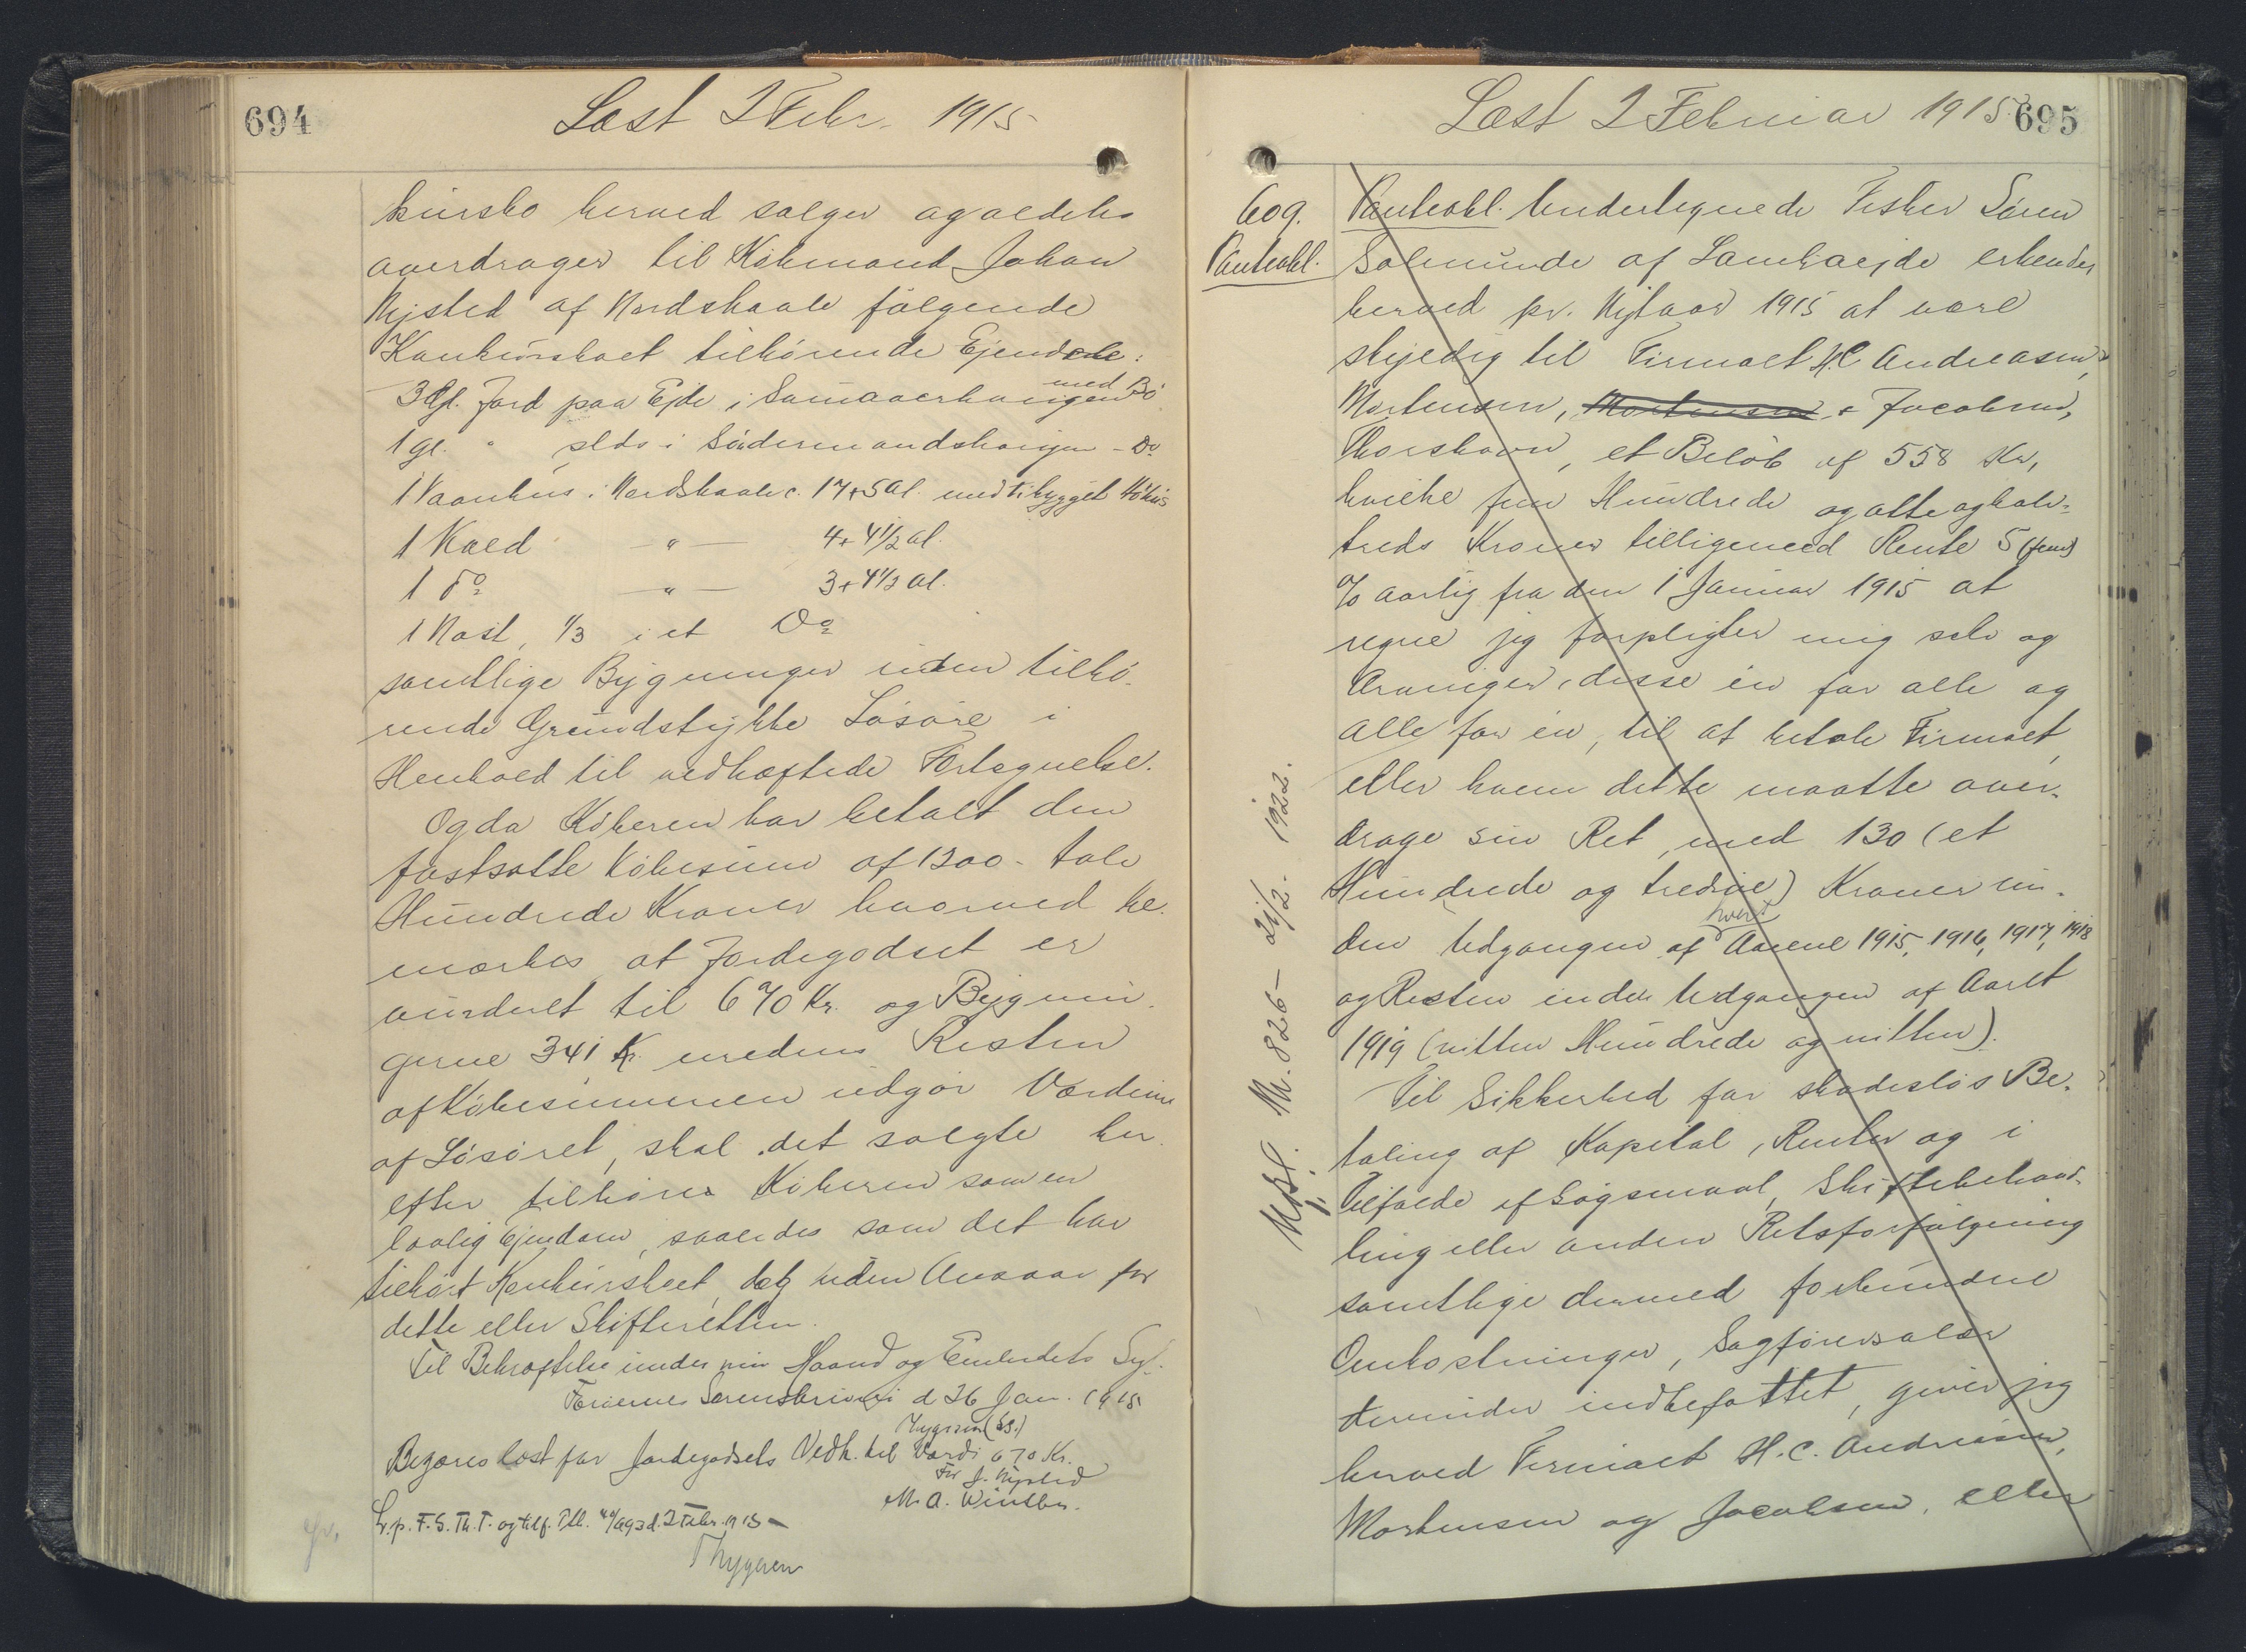 694
Læst 2 Febr. 1915
kursbo herved sælger og aldeles
overdrager til Købmand Johan
Nysted af Nordskaale følgende
Konkursboet tilhørende Ejendele:
3 Gl. Jord paa Ejde i med Bø
1 gl. " slds i - Do
1 Vaanhus i Nordskaale c. 17+5 Al. med tilbygget
1 Kæld " 4+4 1/2 al.
1 Do " 3+4 1/2 al.
1 Nøst, 1/3 i et Do
samtlige Bygninger uden tilhø-
rende Grundstykke Løsøre i
Henhold til vedhæftede Fortegnelse.
Og da Køberen har betalt den
fastsatte Købesum af 1200 - tolv
Hundrede Kroner hvorved be-
mærkes at Jordegodset er
vurderet til 670 Kr. og Bygnin-
gerne 341 Kr. medens Resten
af Købesummen udgør Værdien
af Løsøret, skal det solgte her-
efter tilhøre Køberen som en
lovlig Ejendom, saaledes som det har
tilhørt Konkursboet, dog uden Ansvar for
dette eller Skifteretten.
Til Bekræftelse under min Haand og Embedets Sgl.
Færøernes Sorenskriveri d 26 Jan. 1915
Thygesen (LS.)
Begæres læst for Jordegodsets Vedk. til Værdi 670 Kr.
For J. Nysted
M. A. Winther.
L. p. F. S. Th. T. og d. 2 Febr. 1915
Thygesen
695
Læst 2 Februar 1915
609. Panteobl. Undertegnede Fisker Søren
Panteobl. Solmunde af Lambarejde erkender
herved pr. Nytaar 1915 at være
skyldig til Firmaet H.C. Andreasen,
Mortensen, Mortensen & Jacobsen,
Thorshavn, et Beløb af 558 Kr,
hvilke fem Hundrede og otte og halv-
treds Kroner tilligemed Rente 5 (fem)
% aarlig fra den 1 Januar 1915 at
regne jeg forpligter mig selv og
Arvinger, disse én for alle og
alle for én, til at betale Firmaet,
eller hvem dette maatte over-
drage sin Ret, med 130 (et
Hundrede og tredive) Kroner in-
den Udgangen af hvert Aarene 1915, 1916, 1917, 1918
og Resten inden Udgangen af Aaret
1919 (nitten Hundrede og nitten).
Til Sikkerhed for skadesløs Be-
taling af Kapital, Renter og i
Tilfælde af Søgsmaal, Skiftebehand-
ling eller anden Retsforfølgning
samtlige dermed forbundne
Omkostninger, Sagførersalær
derunder indbefattet, giver jeg
herved Firmaet H.C. Andreasen,
Mortensen og Jacobsen, eller
Udsl. M. 826 - 21/2 - 1922.